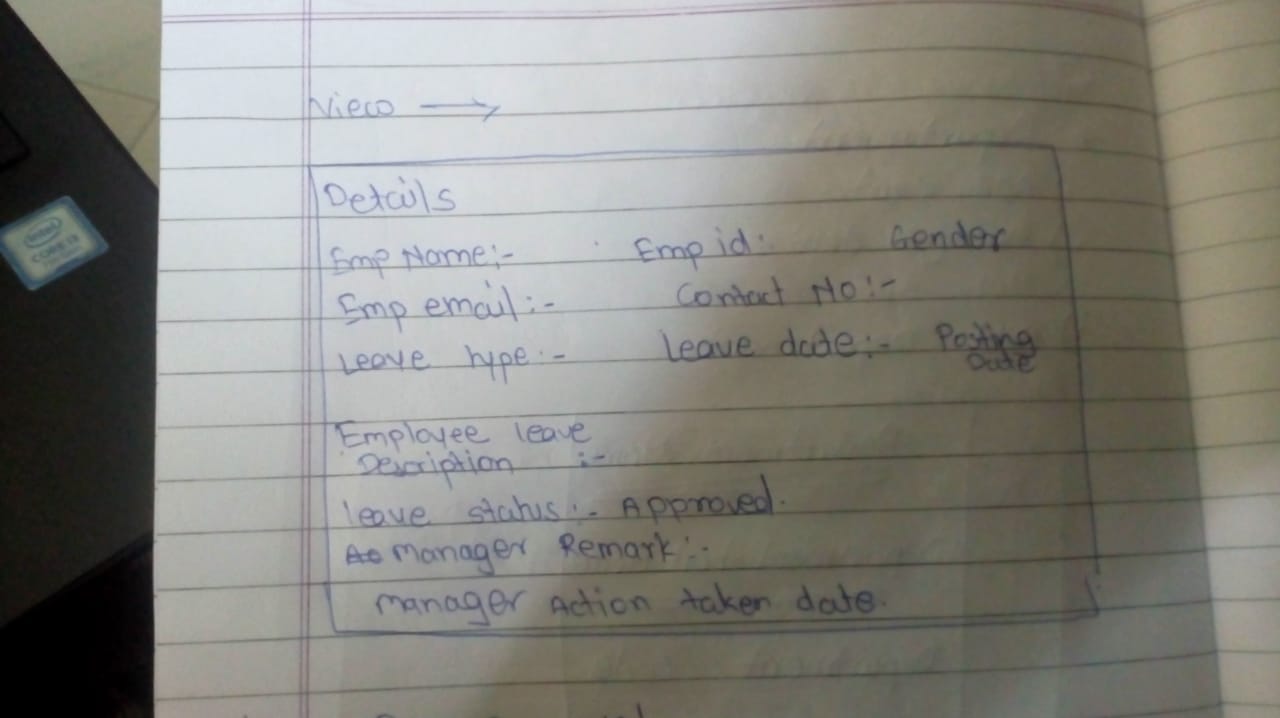 View →
Details
Emp Name:- Emp id: Gender
Emp email:- Contact No:-
Leave type:- Leave date:- Posting Date
Employee leave
Description :-
leave status:- Approved.
manager Remark:-
manager Action taken date.
intel
CORE i3